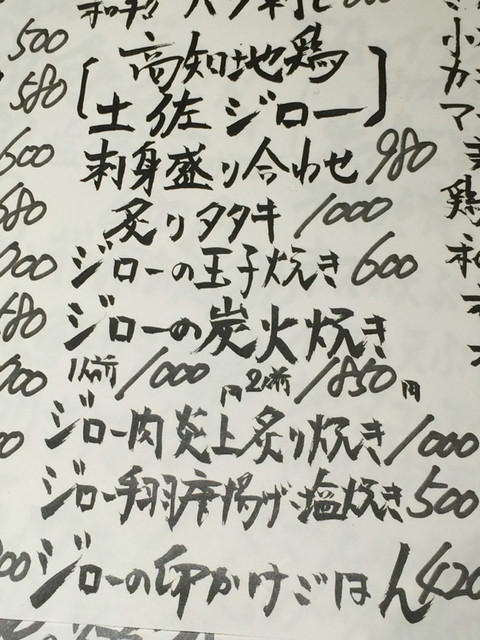 500
580
600
680
580
高知地鶏
土佐ジロー
刺身盛り合わせ 980
炙りタタキ 1000
ジローの玉子焼き 600
ジローの炭火焼き
1人前 1000円 2人前 1850円
ジロー肉炎上炙り焼き 1000
ジロー手羽唐揚げ・塩焼き 500
ジローの卵かけごはん 420
小
カ
マ
鶏